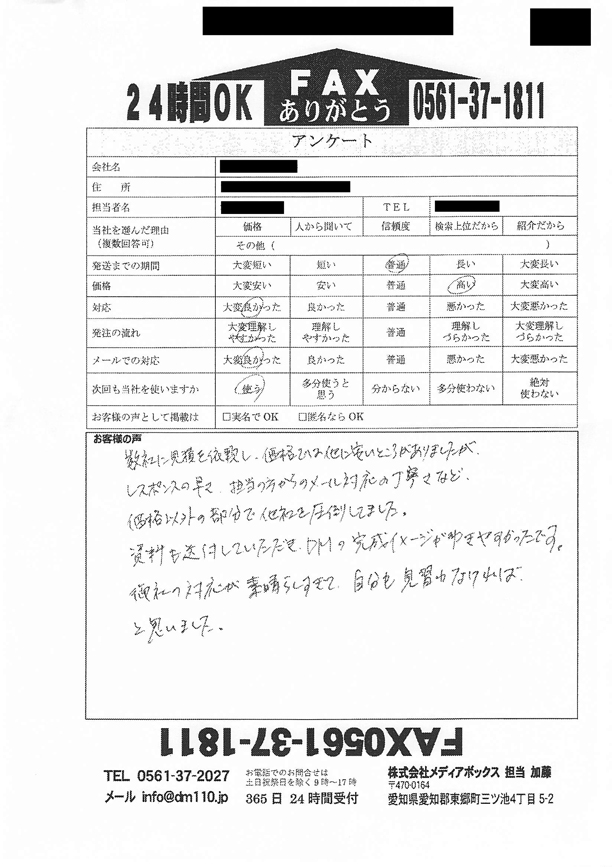 24時間OK
FAX
ありがとう
0561-37-1811
アンケート
会社名
住　所
担当者名 TEL
当社を選んだ理由（複数回答可） 価格 人から聞いて 信頼度 検索上位だから 紹介だから
その他（ ）
発送までの期間 大変短い 短い 普通 長い 大変長い
価格 大変安い 安い 普通 高い 大変高い
対応 大変良かった 良かった 普通 悪かった 大変悪かった
発注の流れ 大変理解しやすかった 理解しやすかった 普通 理解しづらかった 大変理解しづらかった
メールでの対応 大変良かった 良かった 普通 悪かった 大変悪かった
次回も当社を使いますか 使う 多分使うと思う 分からない 多分使わない 絶対使わない
お客様の声として掲載は □実名でOK □匿名ならOK
お客様の声
数社に見積を依頼し、価格では他に安いところがありましたが、
レスポンスの早さ、担当の方からのメール対応の丁寧さなど、
価格以外の部分で他社を圧倒してました。
資料も送付していただき、DMの完成イメージがわきやすかったです。
御社の対応が素晴らしすぎて、自分も見習わなければ、
と思いました。
FAX0561-37-1811
TEL 0561-37-2027
メール info@dm110.jp
お電話でのお問合せは
土日祝祭日を除く9時～17時
365日24時間受付
株式会社メディアボックス 担当 加藤
〒470-0164
愛知県愛知郡東郷町三ツ池4丁目5-2